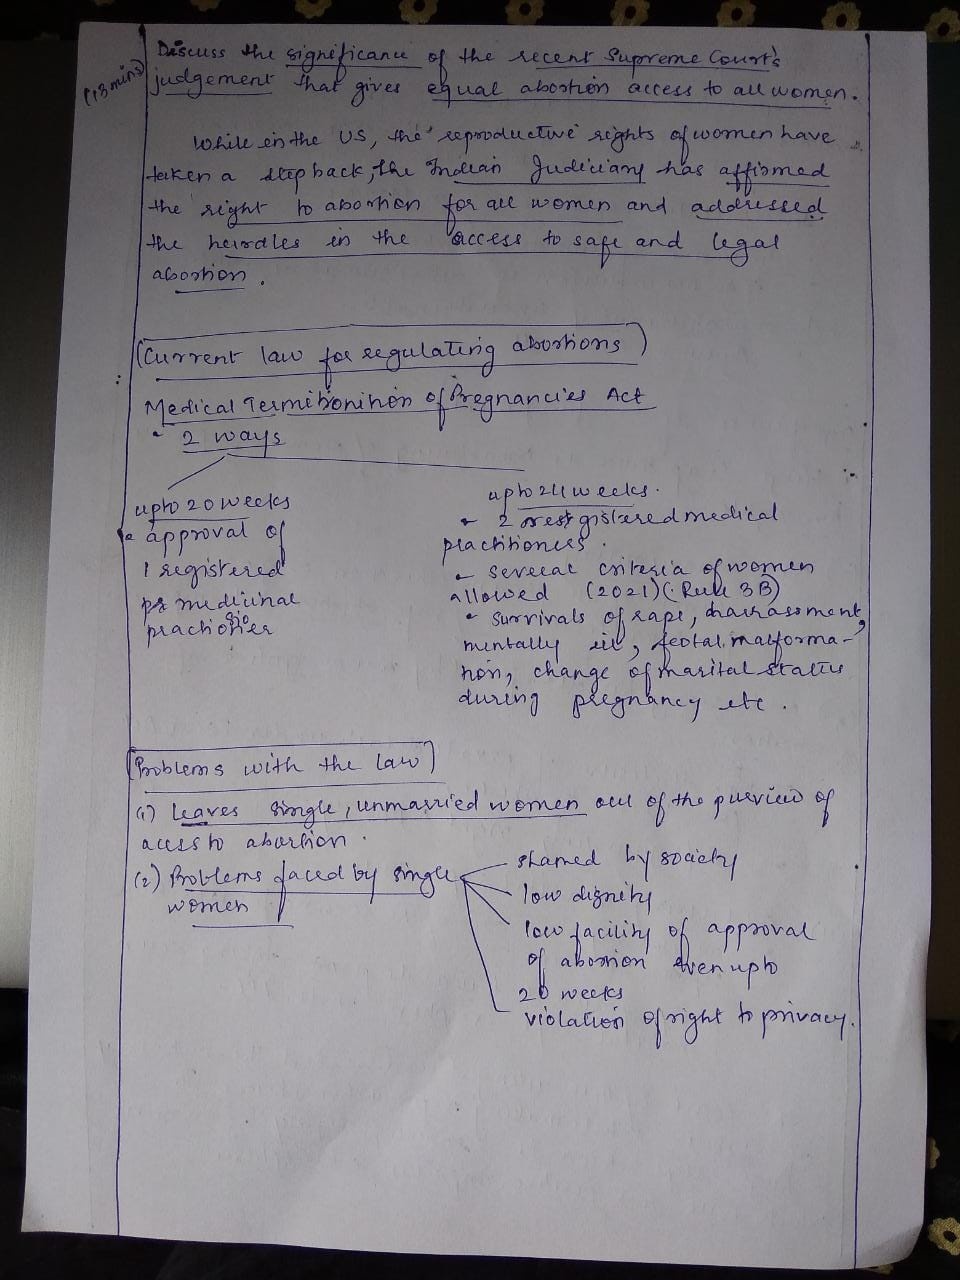 Discuss the significance of the recent Supreme Court's
(13 mins) judgement that gives equal abortion access to all women.
While in the US, the reproductive rights of women have
taken a step back, the Indian Judiciary has affirmed
the right to abortion for all women and addressed
the hurdles in the access to safe and legal
abortion.
(Current law for regulating abortions)
Medical Termibonihon of Pregnancies Act
• 2 ways
upto 20 weeks
• approval of
1 registered
medicinal
practioner
upto 24 weeks.
• 2 registered medical
practitioners.
• several criteria of women
allowed (2021) (Rule 3B)
• Survivals of rape, harrassment,
mentally ill, feotal malforma-
tion, change of marital status
during pregnancy etc.
(Problems with the law)
(1) Leaves single, unmarried women out of the purview of
acess to abortion.
(2) Problems faced by single
women
shamed by society
low dignity
low facility of approval
of abortion even upto
20 weeks
violation of right to privacy.